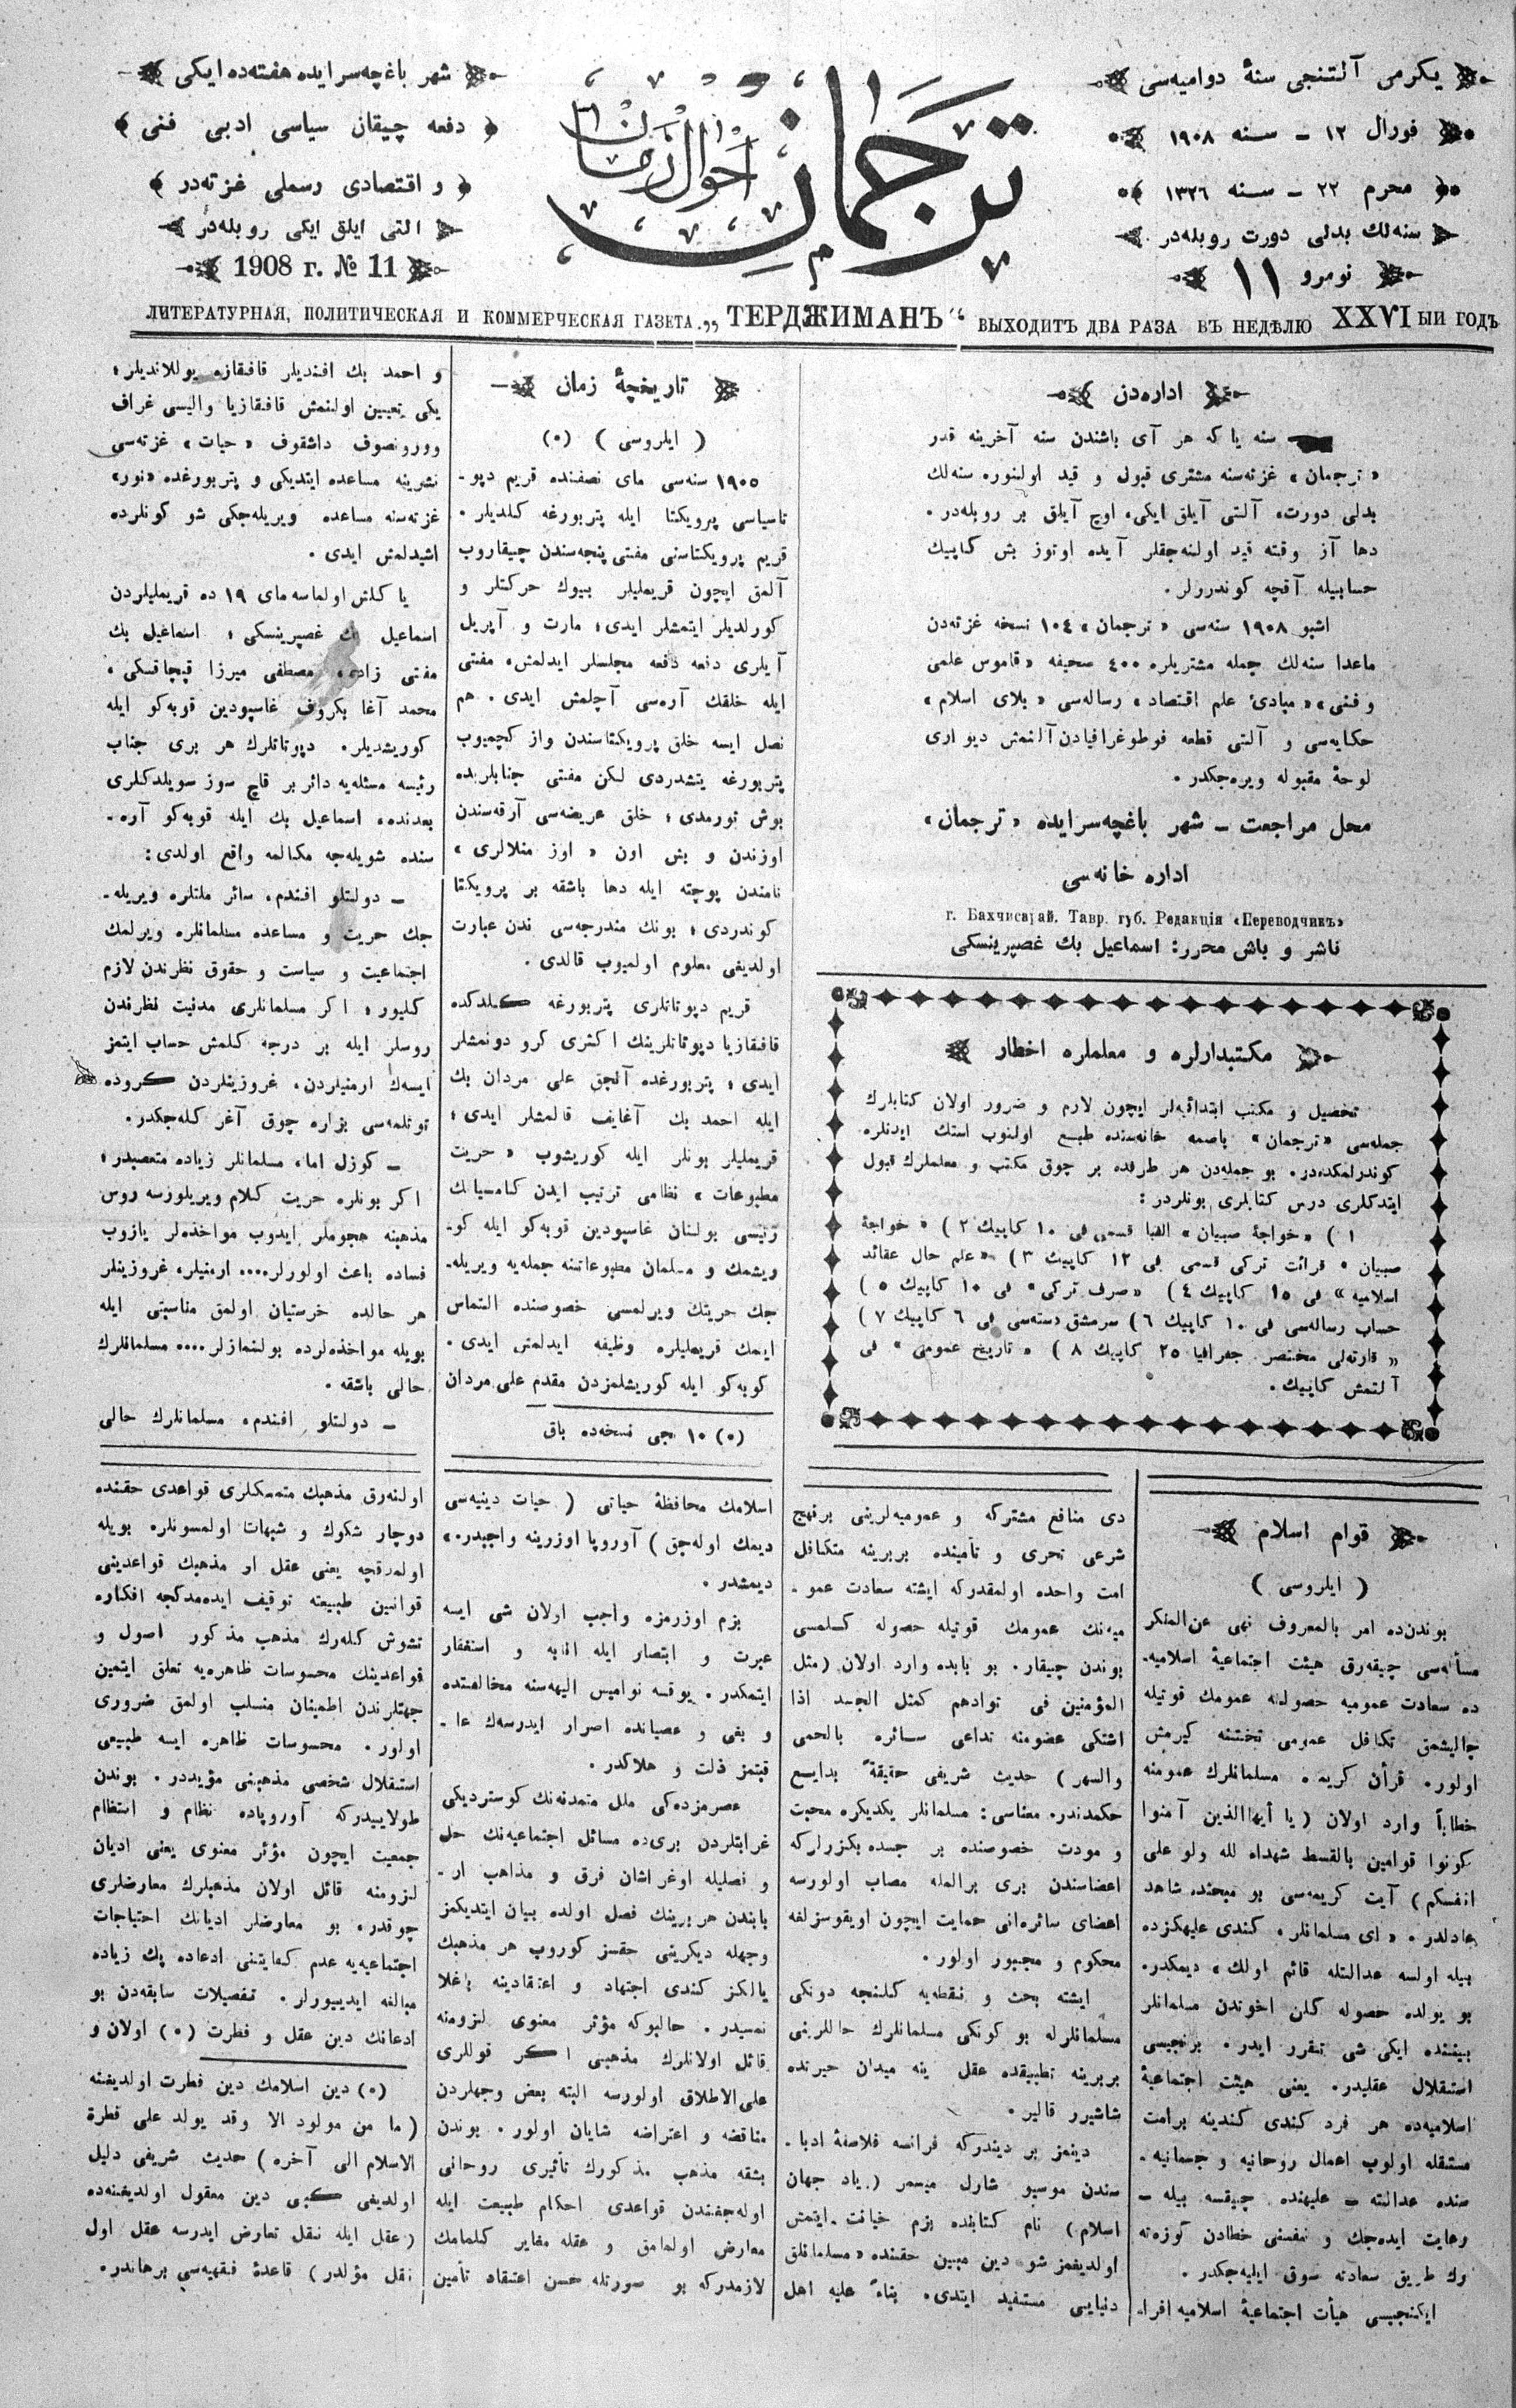 يكرمى آلتنجى سنهٔ دواميه‌سى
فورال ١٢ ــ سنه ١٩٠٨
محرم ٢٢ ــ سنه ١٣٢٦
سنه‌لك بدلى دورت روبله‌در
نومرو ١١
ترجمان
احوال زمان
شهر باغچه‌سرايده هفته‌ده ايكى
دفعه چيقان سياسى ادبى فنى
و اقتصادى رسملى غزته‌در
التى ايلق ايكى روبله‌در
1908 г. № 11
ЛИТЕРАТУРНАЯ, ПОЛИТИЧЕСКАЯ И КОММЕРЧЕСКАЯ ГАЗЕТА „ТЕРДЖИМАНЪ“ ВЫХОДИТЪ ДВА РАЗА ВЪ НЕДѢЛЮ XXVIЫЙ ГОДЪ
اداره‌دن
سنه يا كه هر آى باشندن سنه آخرينه قدر
«ترجمان» غزته‌سنه مشترى قبول و قيد اولنوره سنه‌لك
بدلى دورت، آلتى آيلق ايكى، اوچ آيلق بر روبله‌در.
دها آز وقته قيد اولنه‌جقلر آيده اوتوز بش كاپيك
حسابيله آقچه كوندررلر.
اشبو ١٩٠٨ سنه‌سى «ترجمان» ١٠٤ نسخه غزته‌دن
ماعدا سنه‌لك جمله مشتريلره ٤٠٠ صحيفه «قاموس علمى
و فنى» «مبادىٔ علم اقتصاد» رساله‌سى «بلاى اسلام»
حكايه‌سى و آلتى قطعه فوطوغرافيادن آلنمش ديوارى
لوحهٔ مقبوله ويره‌جكدر.
محل مراجعت ــ شهر باغچه‌سرايده «ترجمان»
اداره خانه‌سى
г. Бахчисарай. Тавр. губ. Редакція «Переводчикъ»
ناشر و باش محرر: اسماعيل بك غصپرينسكى
مكتبدارلره و معلملره اخطار
تحصيل و مكتب ابتدائيه‌لر ايچون لازم و ضرور اولان كتابلرك
جمله‌سى «ترجمان» باصمه خانه‌سنده طبع اولنوب استك ايدنلره
كوندرلمكده‌در. بو جمله‌دن هر طرفده بر چوق مكتب و معلملرك قبول
ايتدكلرى درس كتابلرى بونلردر:
١) «خواجهٔ صبيان» الفبا قسمى فى ١٠ كاپيك ٢) «خواجهٔ
صبيان» قرائت تركى قسمى فى ١٢ كاپيك ٣) «علم حال عقائد
اسلاميه» فى ١٥ كاپيك ٤) «صرف تركى» فى ١٠ كاپيك ٥)
حساب رساله‌سى فى ١٠ كاپيك ٦) سرمشق دسته‌سى فى ٦ كاپيك ٧)
«قارته‌لى مختصر جغرافيا ٢٥ كاپيك ٨) «تاريخ عمومى» فى
آلتمش كاپيك.
تاريخچهٔ زمان
(ايلروسى) (٥)
١٩٠٥ سنه‌سى ماى نصفنده قريم دپو-
تاسياسى پرويكتا ايله پتربورغه كلديلر.
قريم پرويكتاسنى مفتى پنجه‌سندن چيقاروب
آلمق ايچون قريمليلر بيوك حركتلر و
كورلديلر ايتمشلر ايدى؛ مارت و آپريل
آيلرى دفعه دفعه مجلسلر ايدلمش، مفتى
ايله خلقك آره‌سى آچلمش ايدى. هم
نصل ايسه خلق پرويكتاسندن واز كچميوب
پتربورغه يتشدردى لكن مفتى جنابلرىده
بوش تورمدى؛ خلق عريضه‌سى آرقه‌سندن
اوزندن و بش اون «اوز منلالرى»
نامندن پوچته ايله دها باشقه بر پرويكتا
كوندردى؛ بونك مندرجه‌سى ندن عبارت
اولديغى معلوم اولميوب قالدى.
قريم دپوتاتلرى پتربورغه كلدكده
قافقازيا دپوتاتلرينك اكثرى كرو دونمشلر
ايدى؛ پتربورغده آنجق على مردان بك
ايله احمد بك آغايف قالمشلر ايدى؛
قريمليلر بونلر ايله كوريشوب «حريت
مطبوعات» نظامى ترتيب ايدن كامسيانك
رئيسى بولنان غاسپودين قوبه‌كو ايله كو-
ريشمك و مسلمان مطبوعاتنه جمله‌يه ويريله-
جك حريتك ويرلمسى خصوصنده التماس
ايتمك قريمليلره وظيفه ايدلمش ايدى.
كوبه‌كو ايله كوريشلمزدن مقدم على مردان
(٥) ١٠ نجى نسخه‌ده باق
و احمد بك افنديلر قافقازه يوللانديلر؛
يكى تعيين اولنمش قافقازيا واليسى غراف
وورونصوف داشقوف «حيات» غزته‌سى
نشرينه مساعده ايتديكى و پتربورغده «نور»
غزته‌سنه مساعده ويريله‌جكى شو كونلرده
اشيدلمش ايدى.
ياكلش اولماسه ماى ١٩ ده قريمليلردن
اسماعيل بك غصپرينسكى؛ اسماعيل بك
مفتى زاده، مصطفى ميرزا قپچاقسكى،
محمد آغا بكروف غاسپودين قوبه‌كو ايله
كوريشديلر. دپوتاتلرك هر برى جناب
رئيسه مسئله‌يه دائر بر قاچ سوز سويلدكلرى
بعدنده، اسماعيل بك ايله قوبه‌كو آره-
سنده شويله‌جه مكالمه واقع اولدى:
ــ دولتلو افندم، سائر ملتلره ويريله-
جك حريت و مساعده مسلمانلره ويرلمك
اجتماعيت و سياست و حقوق نظرندن لازم
كليور؛ اكر مسلمانلرى مدنيت نظرندن
روسلر ايله بر درجه كلمش حساب ايتمز
ايسه‌ك ارمنيلردن، غروزينلردن كروده
توتلمه‌سى بزاره چوق آغر كله‌جكدر.
ــ كوزل اما، مسلمانلر زياده متعصبدر؛
اكر بونلره حريت كلام ويريلورسه روس
مذهبنه هجوملر ايدوب مواخذه‌لر يازوب
فساده باعث اولورلر.... ارمنيلر، غروزينلر
هر حالده خرستيان اولمق مناسبتى ايله
بويله مواخذه‌لرده بولنمازلر.... مسلمانلرك
حالى باشقه.
ــ دولتلو افندم، مسلمانلرك حالى
قوام اسلام
(ايلروسى)
بوندن‌ده امر بالمعروف نهى عن‌المنكر
مسأله‌سى چيقه‌رق هيئت اجتماعيهٔ اسلاميه-
ده سعادت عموميه حصولنه عمومك قوتيله
چاليشمق تكافل عمومى تختنه كيرمش
اولور. قرآن كريمه، مسلمانلرك عمومنه
خطاباً وارد اولان (يا أيهاالذين آمنوا
كونوا قوامين بالقسط شهداء لله ولو على
انفسكم) آيت كريمه‌سى بو مبحثده شاهد
عادلدر. «اى مسلمانلر، كندى عليهكزده
بيله اولسه عدالتله قائم اولك» ديمكدر.
بو يولده حصوله كلن اخوتدن مسلمانلر
بيننده ايكى شى تقرر ايدر. برنجيسى
استقلال عقليدر. يعنى هيئت اجتماعيهٔ
اسلاميه‌ده هر فرد كندى كندينه برامت
مستقله اولوب اعمال روحانيه و جسمانيه-
سنده عدالته ــ عليهنده چيقسه بيله ــ
رعايت ايده‌جك و نفسنى خطادن كوزه‌ته
رك طريق سعادته سوق ايليه‌جكدر.
ايكنجيسى هيأت اجتماعيهٔ اسلاميه افرا-
دى منافع مشتركه و عموميه‌لرينى برنهج
شرعى تحرى و تأمينده بربرينه متكافل
امت واحده اولمقدركه ايشته سعادت عمو-
ميه‌نك عمومك قوتيله حصوله كلمسى
بوندن چيقار. بو بابده وارد اولان (مثل
المؤمنين فى توادهم كمثل الجسد اذا
اشتكى عضومنه تداعى سائره بالحمى
والسهر) حديث شريفى حقيقةً بدايع
حكمدندر، معناسى: مسلمانلر يكديكره محبت
و مودت خصوصنده بر جسده بكزرلركه
اعضاسندن برى برالمله مصاب اولورسه
اعضاى سائره‌نى حمايت ايچون اويقوسزلغه
محكوم و مجبور اولور.
ايشته بحث و نقطه‌يه كلنجه دونكى
مسلمانلرله بو كونكى مسلمانلرك حاللرينى
بربرينه تطبيقده عقل ينه ميدان حيرنده
شاشيرر قالير.
دينمز بر ديندركه فرانسه فلاسفهٔ ادبا-
سندن موسيو شارل ميسمر (ياد جهان
اسلام) نام كتابنده بزم خيانت ايتمش
اولديغمز شو دين مبين حقنده «مسلمانلق
دنيايى مستفيد ايتدى، بناءً عليه اهل
اسلامك محافظهٔ حياتى (حيات دينيه‌سى
ديمك اوله‌جق) آوروپا اوزرينه واجبدر.»
ديمشدر.
بزم اوزرمزه واجب اولان شى ايسه
عبرت و ابتصار ايله انابه و استغفار
ايتمكدر. يوقسه نواميس الهيه‌سنه مخالفتده
و بغى و عصيانده اصرار ايدرسه‌ك عا-
قبتمز ذلت و هلاكدر.
عصرمزده‌كى ملل متمدنه‌نك كوستردیكى
غرابتلردن برى‌ده مسائل اجتماعيه‌نك حل
و فصليله اوغراشان فرق و مذاهب ار-
بابندن هر برينك فصل اولده بيان ايتديكمز
وجهله ديكرينى حقسز كوروب هر مذهبك
يالكز كندى اجتهاد و اعتقادينه باغلا
نمسيدر. حالبوكه مؤثر معنوى لزومنه
قائل اولانلرك مذهبى اكر قوللرى
على‌الاطلاق اولورسه البته بعض وجهلردن
مناقضه و اعتراضه شايان اولور. بوندن
بشقه مذهب مذكورك تأثيرى روحانى
اوله‌جغندن قواعدى احكام طبيعت ايله
معارض اولمامق و عقله مغاير كلمامك
لازمدركه بو صورتله حسن اعتقاد تأمين
اولنه‌رق مذهبك متمسكلرى قواعدى حقنده
دوچار شكوك و شبهات اولمسونلره بويله
اولمدقچه يعنى عقل او مذهبك قواعدينى
قوانين طبيعته توفيق ايده‌مدكجه افكاره
تشوش كله‌رك مذهب مذكور اصول و
قواعدينك محسوسات ظاهره‌يه تعلق ايتمين
جهتلرندن اطمينان منسلب اولمق ضرورى
اولور. محسوسات ظاهره ايسه طبيعى
استقلال شخصى مذهبنى مؤيددر. بوندن
طولاييدركه آوروپاده نظام و انتظام
جمعيت ايچون مؤثر معنوى يعنى اديان
لزومنه قائل اولان مذهبلرك معارضلرى
چوقدر، بو معارضلر اديانك احتياجات
اجتماعيه‌يه عدم كفايتنى ادعاده پك زياده
مبالغه ايدييورلر. تفصيلات سابقه‌دن بو
ادعانك دين عقل و فطرت (٥) اولان و
(٥) دين اسلامك دين فطرت اولديغنه
(ما من مولود الا وقد يولد على فطرة
الاسلام الى آخره) حديث شريفى دليل
اولديغى كبى دين معقول اولديغنه‌ده
(عقل ايله نقل تعارض ايدرسه عقل اول
نقل مؤلدر) قاعدهٔ فقهيه‌سى برهاندر.